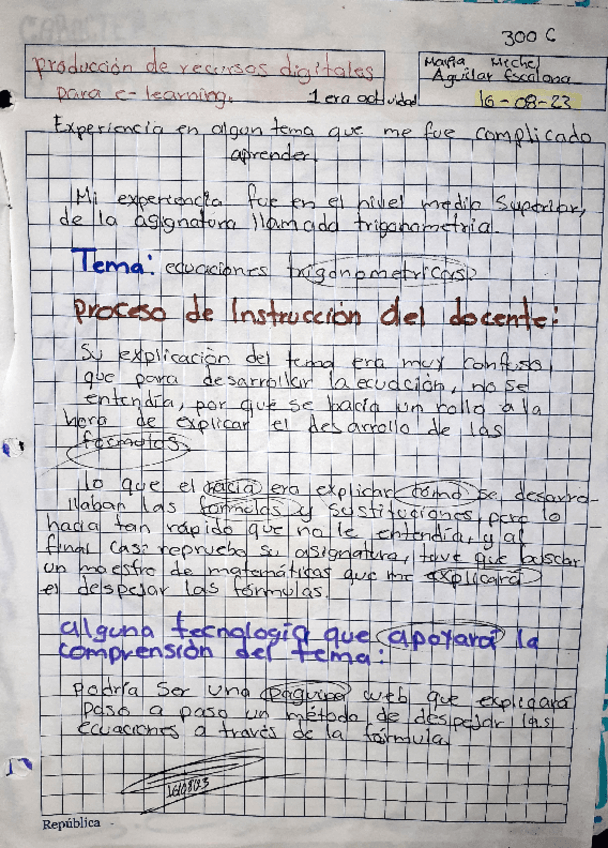 300 C
Producción de recursos digitales
para e-learning.
1 era actividad
María Michel
Aguilar Escalona
16-08-23
Experiencia en algun tema que me fue complicado
aprender.
Mi experiencia fue en el nivel medio superior,
de la asignatura llamada trigonometria.
Tema: ecuaciones trigonometricas.
Proceso de Instrucción del docente:
Su explicación del tema era muy confusa,
que para desarrollar la ecuación, no se
entendía, por qué se hacía un rollo a la
hora de explicar el desarrollo de las
formulas.
Lo que el hacia era explicar como se desarro-
llaban las formulas y sustituciones, pero lo
hacia tan rápido que no le entendía, y al
final casi repruebo su asignatura, tuve que buscar
un maestro de matemáticas que me explicara
el despejar las fórmulas.
alguna tecnología que apoyara la
comprensión del tema:
Podría ser una página web que explicara
paso a paso un método de despejar las
ecuaciones a través de la fórmula
160823
República